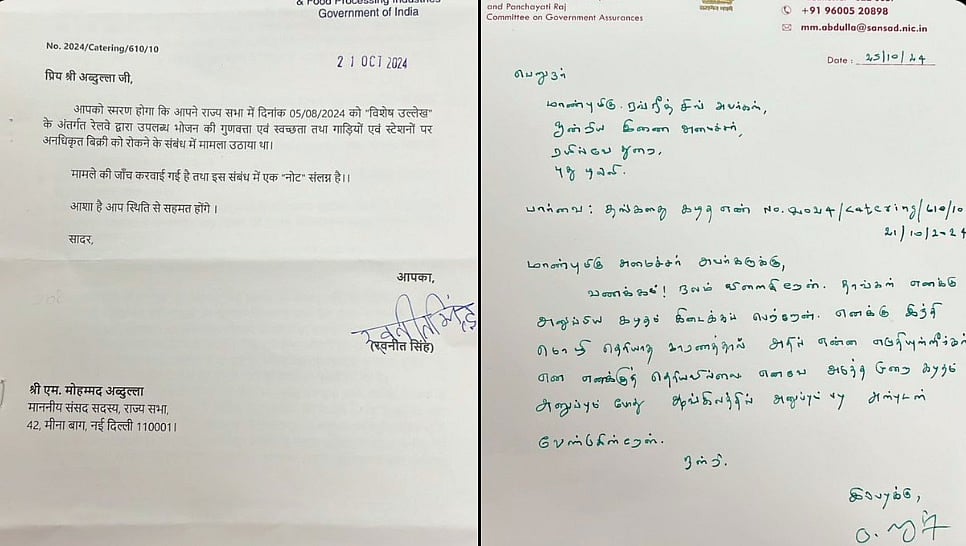 & Food Processing Industries
Government of India
No. 2024/Catering/610/10
21 OCT 2024
प्रिय श्री अब्दुल्ला जी,
आपको स्मरण होगा कि आपने राज्य सभा में दिनांक 05/08/2024 को "विशेष उल्लेख"
के अंतर्गत रेलवे द्वारा उपलब्ध भोजन की गुणवत्ता एवं स्वच्छता तथा गाड़ियों एवं स्टेशनों पर
अनधिकृत बिक्री को रोकने के संबंध में मामला उठाया था।
मामले की जाँच करवाई गई है तथा इस संबंध में एक "नोट" संलग्न है।।
आशा है आप स्थिति से सहमत होंगे ।
सादर,
आपका,
रवनीत सिंह
(रवनीत सिंह)
श्री एम. मोहम्मद अब्दुल्ला
माननीय संसद सदस्य, राज्य सभा,
42, मीना बाग, नई दिल्ली 110001।
and Panchayati Raj
Committee on Government Assurances
+91 96005 20898
mm.abdulla@sansad.nic.in
Date : 25/10/24
பெறுநர்
மாண்புமிகு. ரவ்நீத் சிங் அவர்கள்,
ஒன்றிய இணை அமைச்சர்,
ரயில்வே துறை,
புது டில்லி.
பார்வை: தங்களது கடித எண் No. 2024/Catering/610/10
21/10/2024
மாண்புமிகு அமைச்சர் அவர்களுக்கு,
வணக்கம்! நலம் விளைகிறேன். தாங்கள் எனக்கு
அனுப்பிய கடிதம் கிடைக்கப் பெற்றேன். எனக்கு இந்தி
மொழி தெரியாத காரணத்தால் அதில் என்ன எழுதியுள்ளீர்கள்
என எனக்குத் தெரியவில்லை எனவே அடுத்த முறை கடிதம்
அனுப்பும் போது ஆங்கிலத்தில் அனுப்பும் படி அன்புடன்
வேண்டுகின்றேன்.
நன்றி.
இப்படிக்கு,